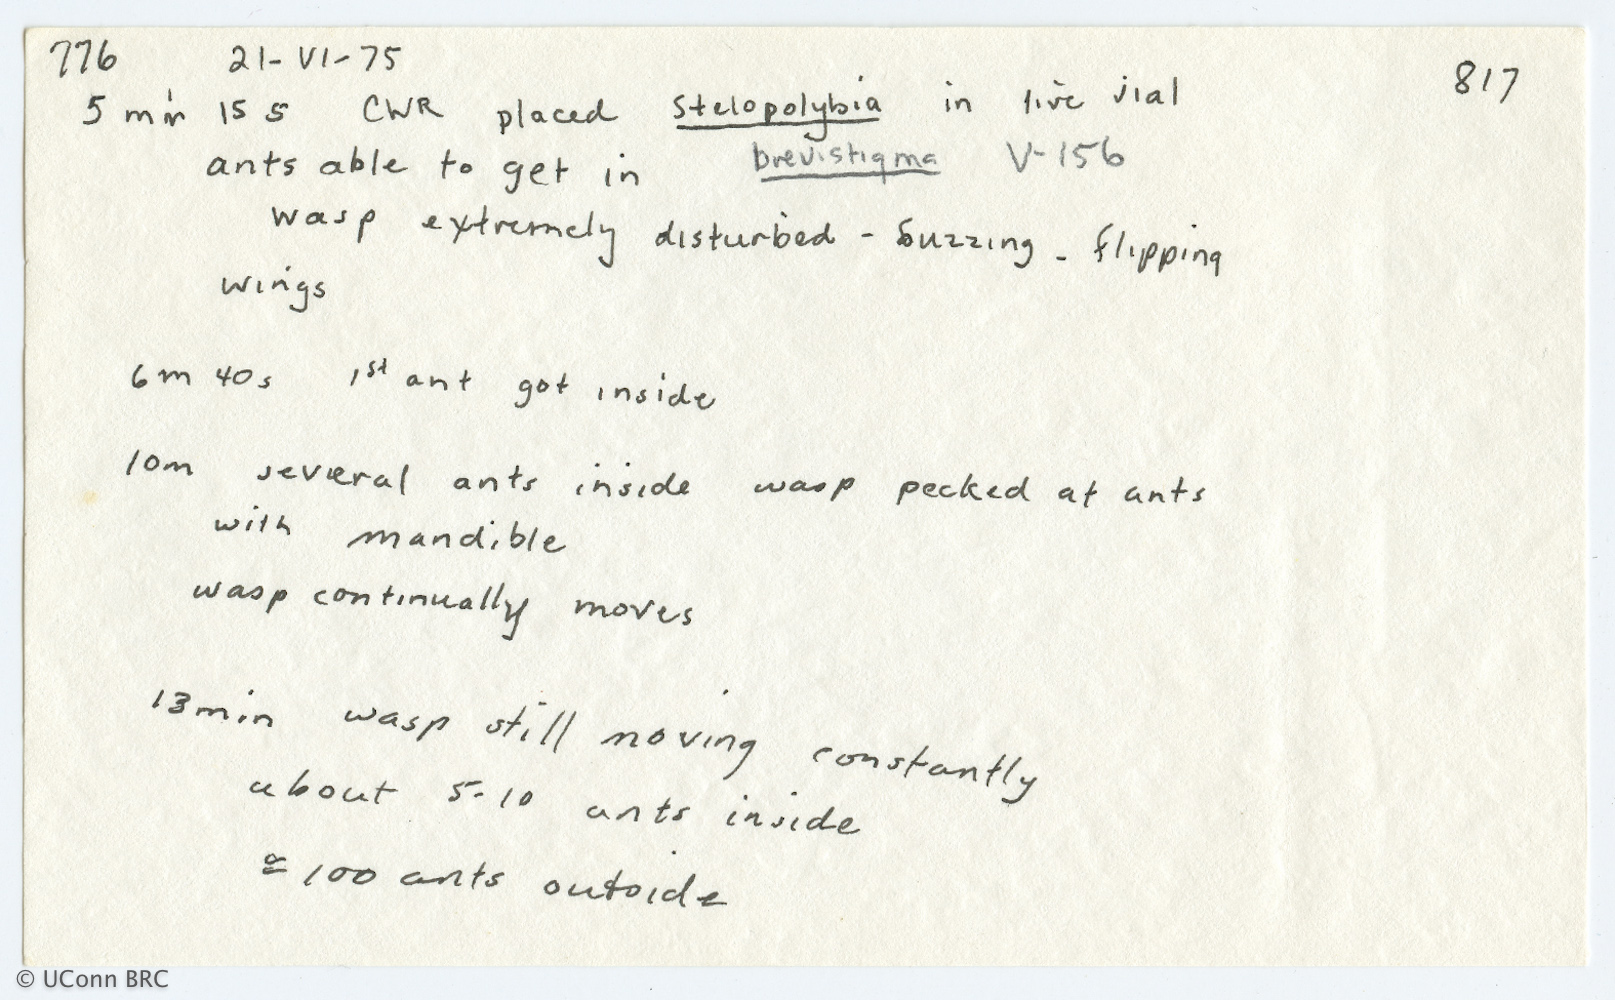 776 21-VI-75 817
5 min 15 s CWR placed Stelopolybia in live vial
ants able to get in brevistigma V-156
wasp extremely disturbed - buzzing - flipping
wings
6m 40s 1st ant got inside
10m several ants inside wasp pecked at ants
with mandible
wasp continually moves
13min wasp still moving constantly
about 5-10 ants inside
≅ 100 ants outside
© UConn BRC